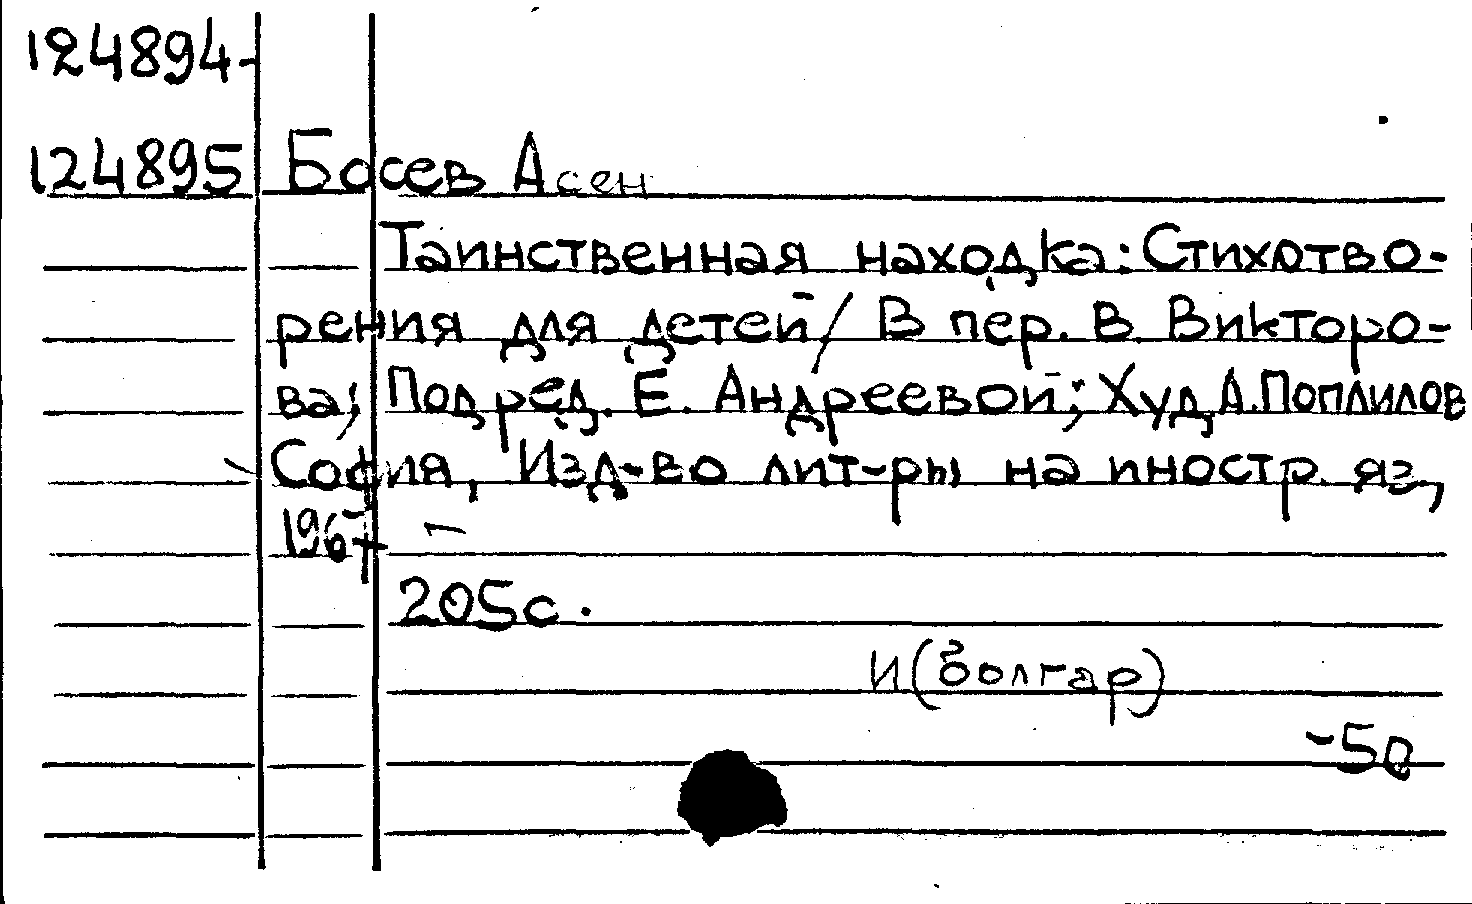 124894-
124895 Босев Асен
Таинственная находка: Стихотво-
рения для детей / В пер. В. Викторо-
ва; Под ред. Е. Андреевой; Худ А. Поплилов
София, Изд-во лит-ры на иностр. яз,
1967 -
205с.
И(болгар)
-50